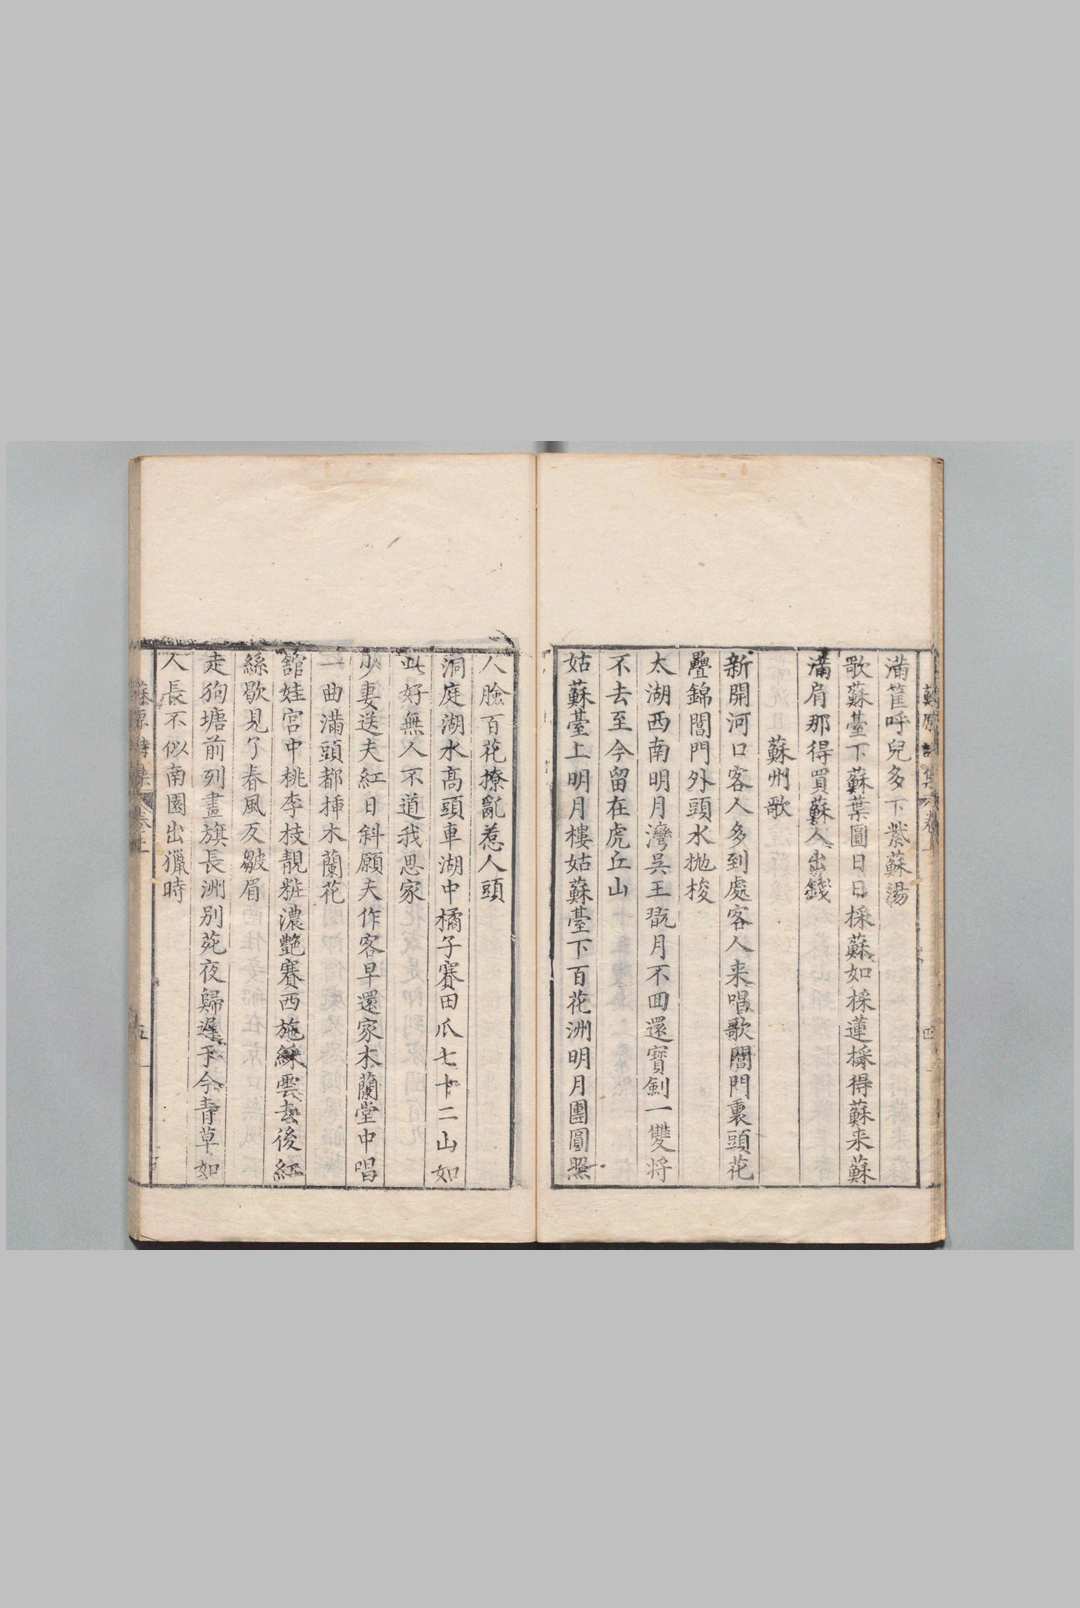 蘇原詩集 卷上
四
滿筐呼兒多下紫蘇湯
歌蘇臺下蘇葉圓日日採蘇如採蓮採得蘇来蘇
滿肩那得買蘇人出錢
蘇州歌
新開河口客人多到處客人来唱歌閶門裏頭花
疊錦閶門外頭水抛梭
太湖西南明月灣吳王翫月不回還寳劍一雙将
不去至今留在虎丘山
姑蘇臺上明月樓姑蘇臺下百花洲明月團圓照
人臉百花撩亂惹人頭
洞庭湖水高頭車湖中橘子賽田瓜七十二山如
此好無人不道我思家
少妻送夫紅日斜願夫作客早還家木蘭堂中唱
一曲滿頭都揷木蘭花
舘娃宫中桃李枝靚粧濃艶賽西施綵雲去後紅
絲歇見了春風反皺眉
走狗塘前列畫旗長洲別苑夜歸遲于今青草如
人長不似南園出獵時
蘇原詩集 卷上
五